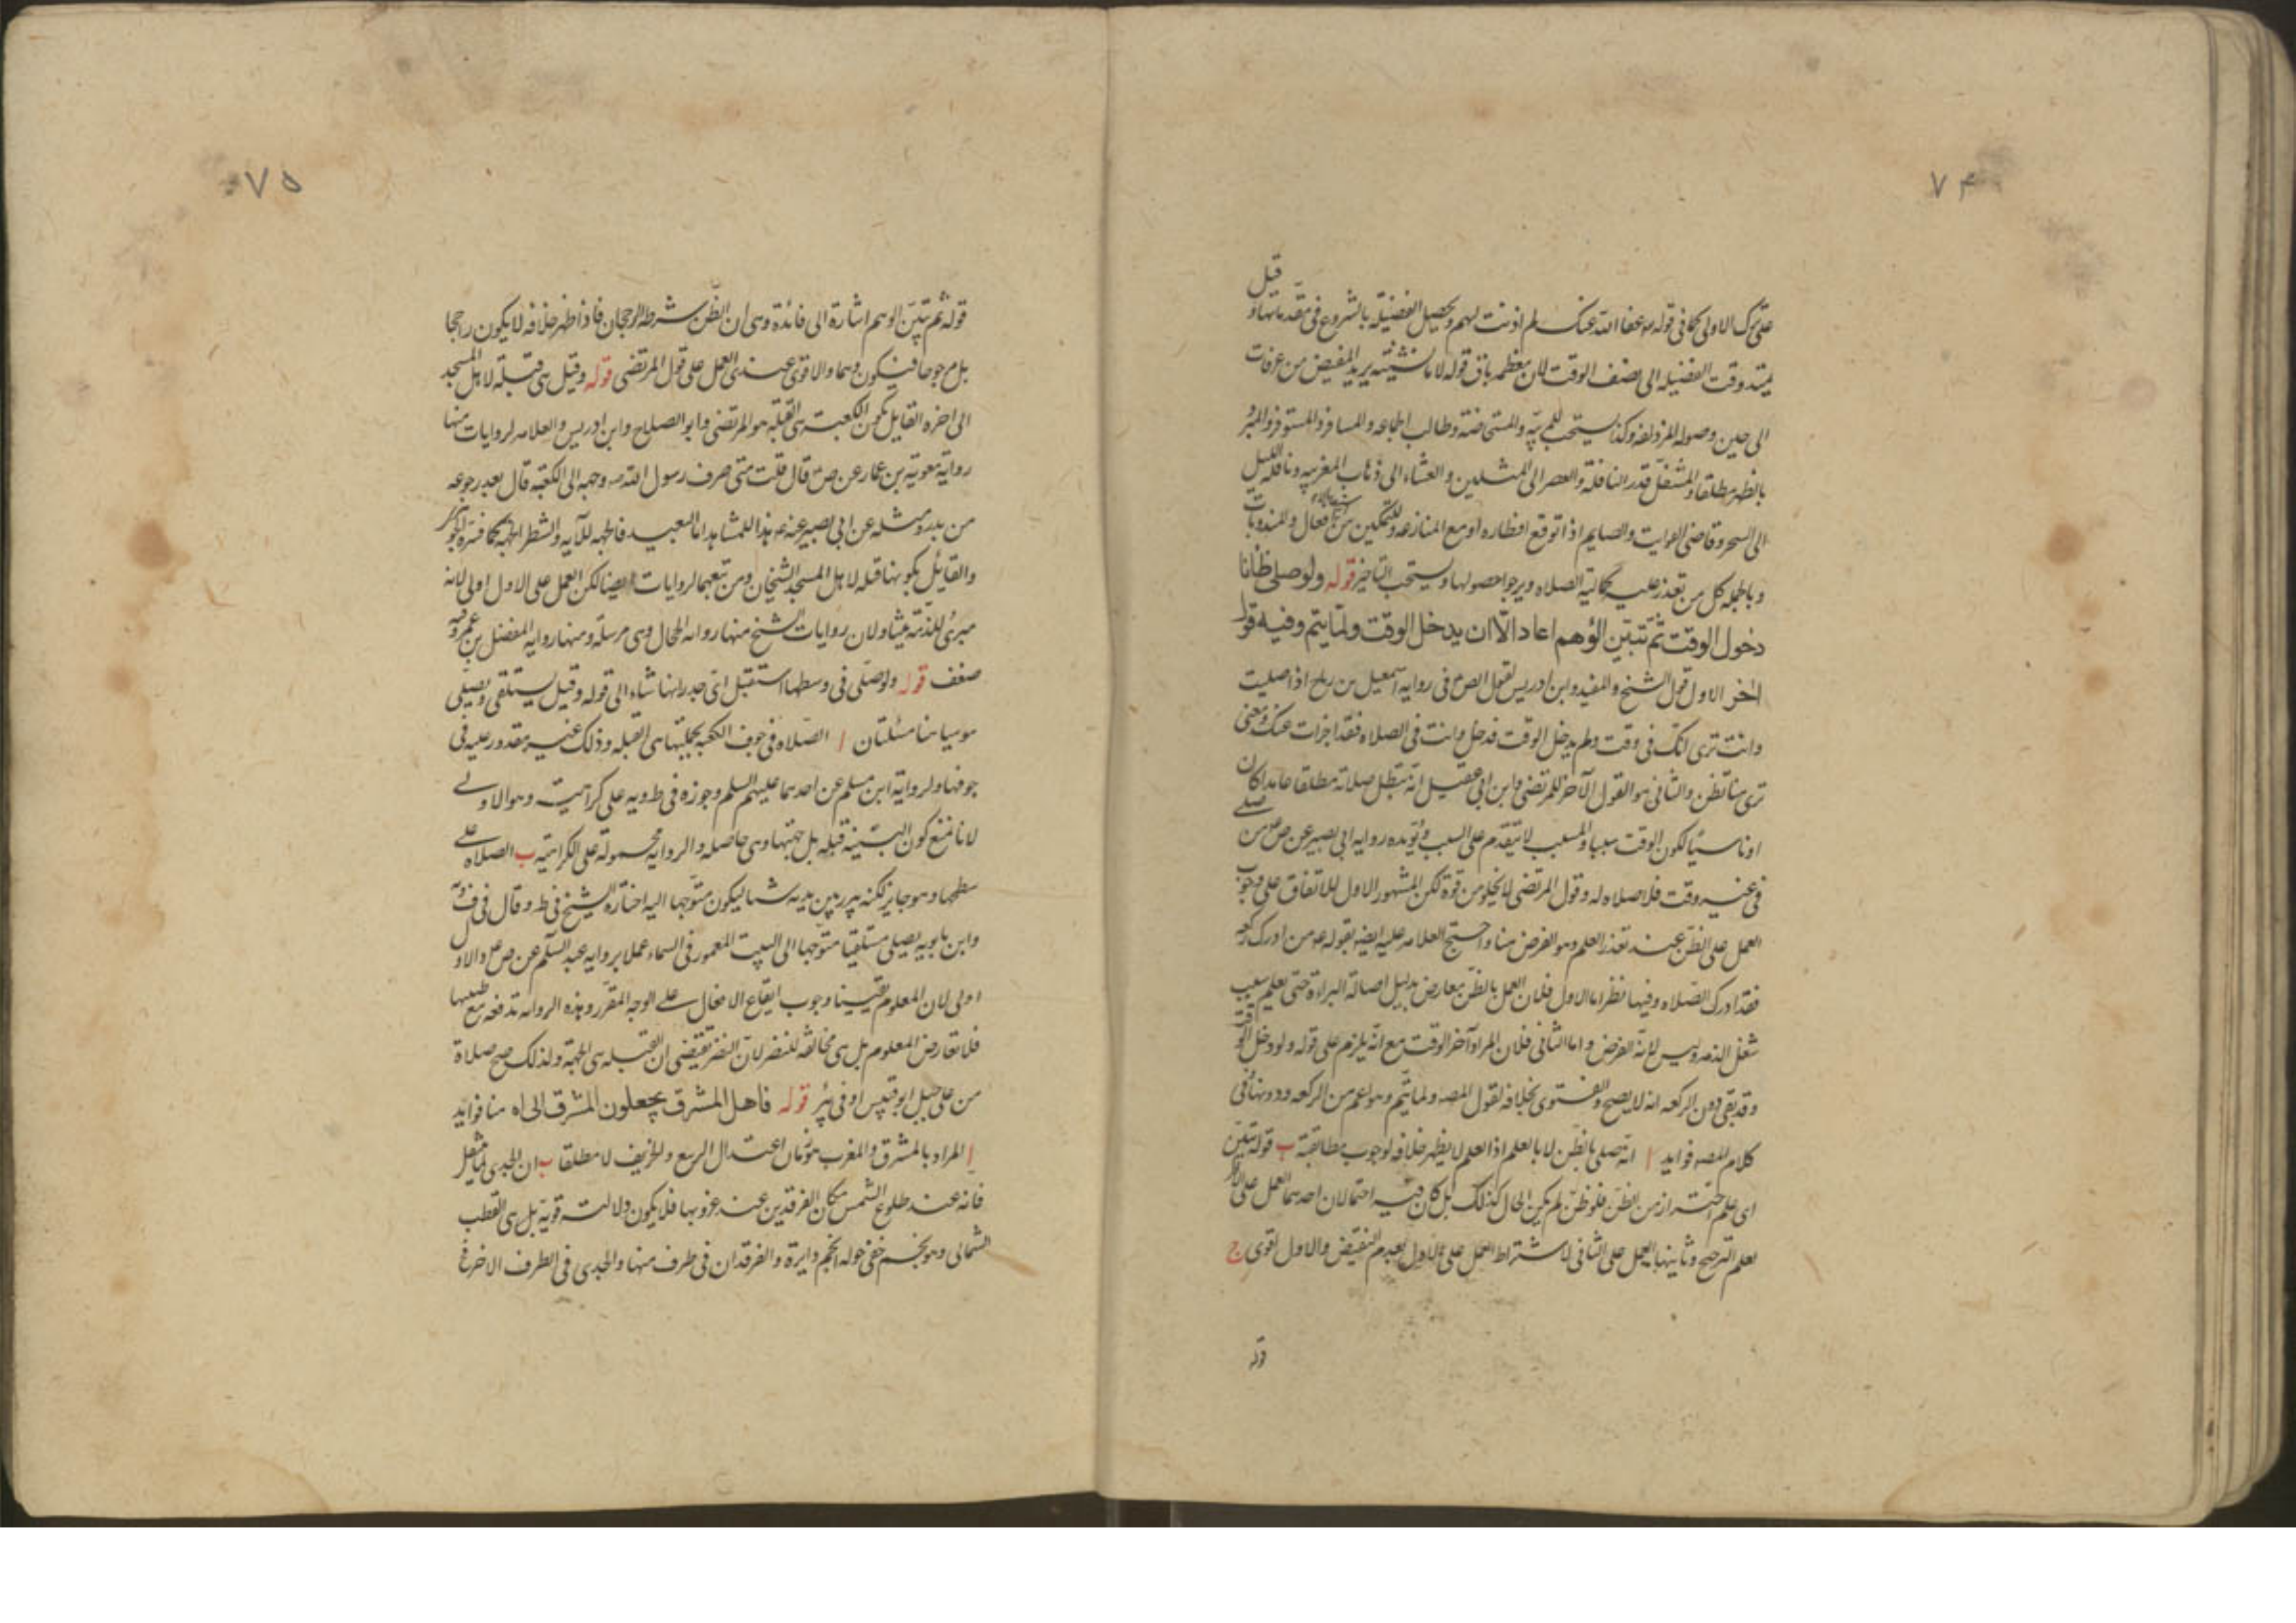 ٧٤
على ترك الاولى كما في قوله عفا الله عنك لم اذنت لهم وتحصيل الفضيلة بالشروع في مقدماتها وقيل
يمتد وقت الفضيله الى نصف الوقت لان معظمه باق قوله لا ما نستثنيه يريد المفيض من عرفات
الى حين وصوله المزدلفه وكذا يستحب للمربيه والمستحاضة وطالب الجماعه والمسافر والمستوفز والمبرد
بالظهر مطلقا والمتنفل قدر النافلة والعصر الى المثلين والعشاء الى ذهاب المغربيه ونافلة الليل
الى السحر وقاضى الفوايت والصايم اذا توقع افطاره او مع المنازعه وللتمكين من افعال والمندوبات
وبالجمله كل من تعذر عليه كمالية الصلاه ويرجوا حصولها ويستحب التاخير قوله ولو صلى ظانا
دخول الوقت ثم تبين الوهم اعاد الا ان يدخل الوقت ولما يتم وفيه قول
اخر الاول قول الشيخ والمفيد وابن ادريس لقول الص في رواية اسمعيل بن رباح اذا صليت
وانت ترى انك في وقت ولم يدخل الوقت فدخل وانت في الصلاه فقد اجزات عنك ومعنى
ترى هنا تظن والثاني هو القول الاخر للمرتضى وابن ابي عقيل انه تبطل صلاته مطلقا عامدا كان
او ناسيا لكون الوقت سببا والمسبب لا يتقدم على السبب ويؤيده روايه ابي بصير عن ص من صلى
في غير وقت فلا صلاه له وقول المرتضى لا يخلو من قوة لكن المشهور الاول للاتفاق على وجوب
العمل على الظن عند تعذر العلم وهو الفرض هنا واحتج العلامه عليه ايضا بقوله من ادرك ركعه
فقد ادرك الصلاه وفيها نظر اما الاول فلان العمل بالظن معارض بدليل اصالة البراءة حتى يعلم سبب
شغل الذمه وليس لانه الفرض واما الثاني فلان المراد آخر الوقت مع انه يلزم على قوله ولو دخل الوقت
وقد بقى دون الركعه انه لا يصح والفتوى بخلافه لقول المصه ولما يتم وهو اعم من الركعه ودونها في
كلام المصه فوايد ا انه صلى بالظن لا بالعلم اذ العلم لا يظهر خلافه لوجوب مطابقته ب قوله تبين
اى علم احترازا من الظن فلو ظن لم يكن الحال كذلك بل كان فيه احتمالان احدهما العمل على
لعدم الترجيح وثانيها العمل على الثاني لاشتراط العمل على الاول بعدم النقيض والاول اقوى ج
قوله
٧٥
قوله ثم تبين الوهم اشارة الى فائدة وهى ان الظن شرطه الرجحان فاذا ظهر خلافه لا يكون راجحا
بل مرجوحا فيكون وهما والاقوى عندى العمل على قول المرتضى قوله وقيل هى قبلة لاهل المسجد
الى اخره القايل بكون الكعبة هى القبلة هو المرتضى وابو الصلاح وابن ادريس والعلامه لروايات منها
رواية معوية بن عمار عن ص قال قلت متى صرف رسول الله وجهه الى الكعبة قال بعد رجوعه
من بدر ومثله عن ابي بصير عنه هذا للمشاهد اما البعيد فالجهه للآيه والشطر الجهة كما فسره الجوهرى
والقائل بكونها قبله لاهل المسجد الشيخان ومن تبعهما لروايات ايضا لكن العمل على الاول اولى لانه
مبرئ للذمة ولان روايات الشيخ منها رواية الحجال وهى مرسلة ومنها روايه المفضل بن عمر وفيه
ضعف قوله ولو صلى في وسطها استقبل اى جدرانها شاء الى قوله وقيل يستلقى ويصلى
موميا هنا مسئلتان ا الصلاه في جوف الكعبه بجملتها هى القبله وذلك غير مقدور عليه في
جوفها ولرواية ابن مسلم عن احدهما عليهم السلم وجوزه في ط ويه على كراهيت وهو الاولى
لانا نمنع كون البنية قبله بل جهتها وهى حاصله والروايه محموله على الكراهية ب الصلاه على
سطحها وهو جايز لكنه يبرز بين يديه شيئا ليكون متوجها اليه اختاره الشيخ في ط وقال في ف ويه
وابن بابويه يصلى مستلقيا متوجها الى البيت المعمور في السماء عملا بروايه عبد السلم عن ص والاول
اولى لان المعلوم يقينا وجوب ايقاع الافعال على الوجه المقرر وهذه الروايه تدفعه مع ضعفها
فلا تعارض المعلوم بل هى مخالفة للنص لان النص تقتضى ان القبله هى الجهة ولذلك صح صلاة
من على جبل ابو قبيس او في بئر قوله فاهل المشرق يجعلون المشرق الى اه هنا فوايد
ا المراد بالمشرق والمغرب زمان اعتدال الربيع والخريف لا مطلقا ب ان الجدى
فانه عند طلوع الشمس مكان الفرقدين عند غروبها فلا يكون دلالته قوية بل هى القطب
الشمالى وهو نجم خفى حوله انجم دايرة والفرقدان في طرف منها والجدى في الطرف الاخر